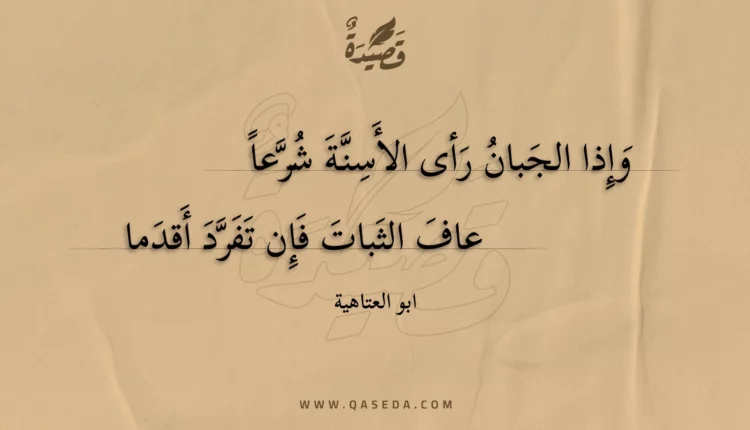 قَصِيدَةٌ
وَإِذا الجَبانُ رَأى الأَسِنَّةَ شُرَّعاً
عافَ الثَباتَ فَإِن تَفَرَّدَ أَقدَما
ابو العتاهية
WWW.QASEDA.COM